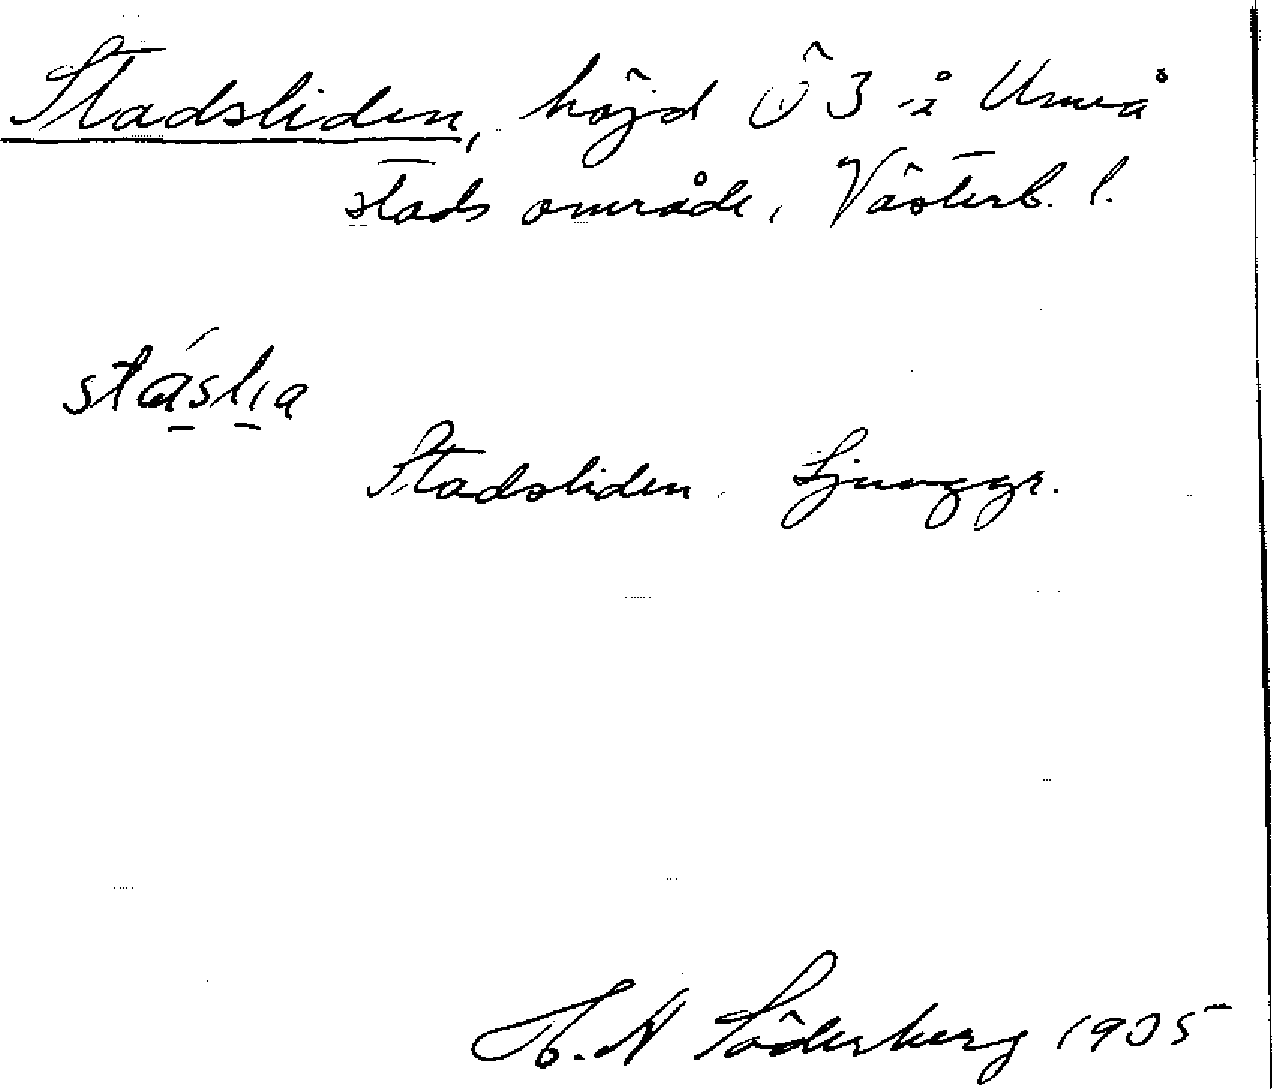 Stadsliden, höjd Ö3 i Umeå
stads område, Västerb. l.
stáslia
Stadsliden. Ljunggr.
H. N Söderberg 1905